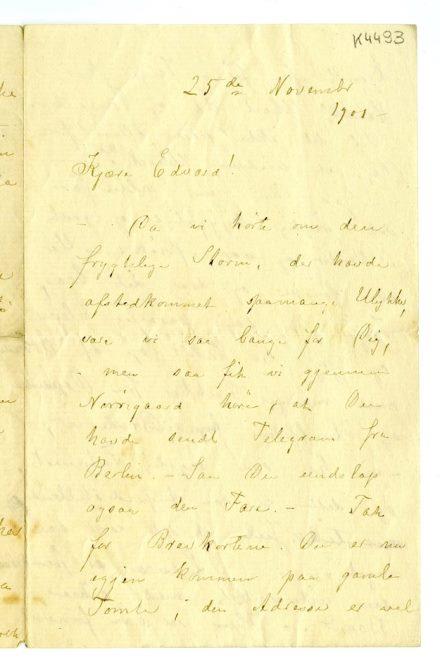 K4493
25de Novembr
1901 -
Kjære Edvard!
- Da vi hørte om den
frygtelige Storm, der havde
afstedkommet saamange Ulykker,
vare vi saa bange for Dig,
- men saa fik vi gjennem
Nørregaard høre, at Du
havde sendt Telegram fra
Berlin. - Saa Du undslap
ogsaa den Fare. - Tak
for Brevkortene. Du er nu
igjen kommen paa gamle
Tomter; den Adresse er vel